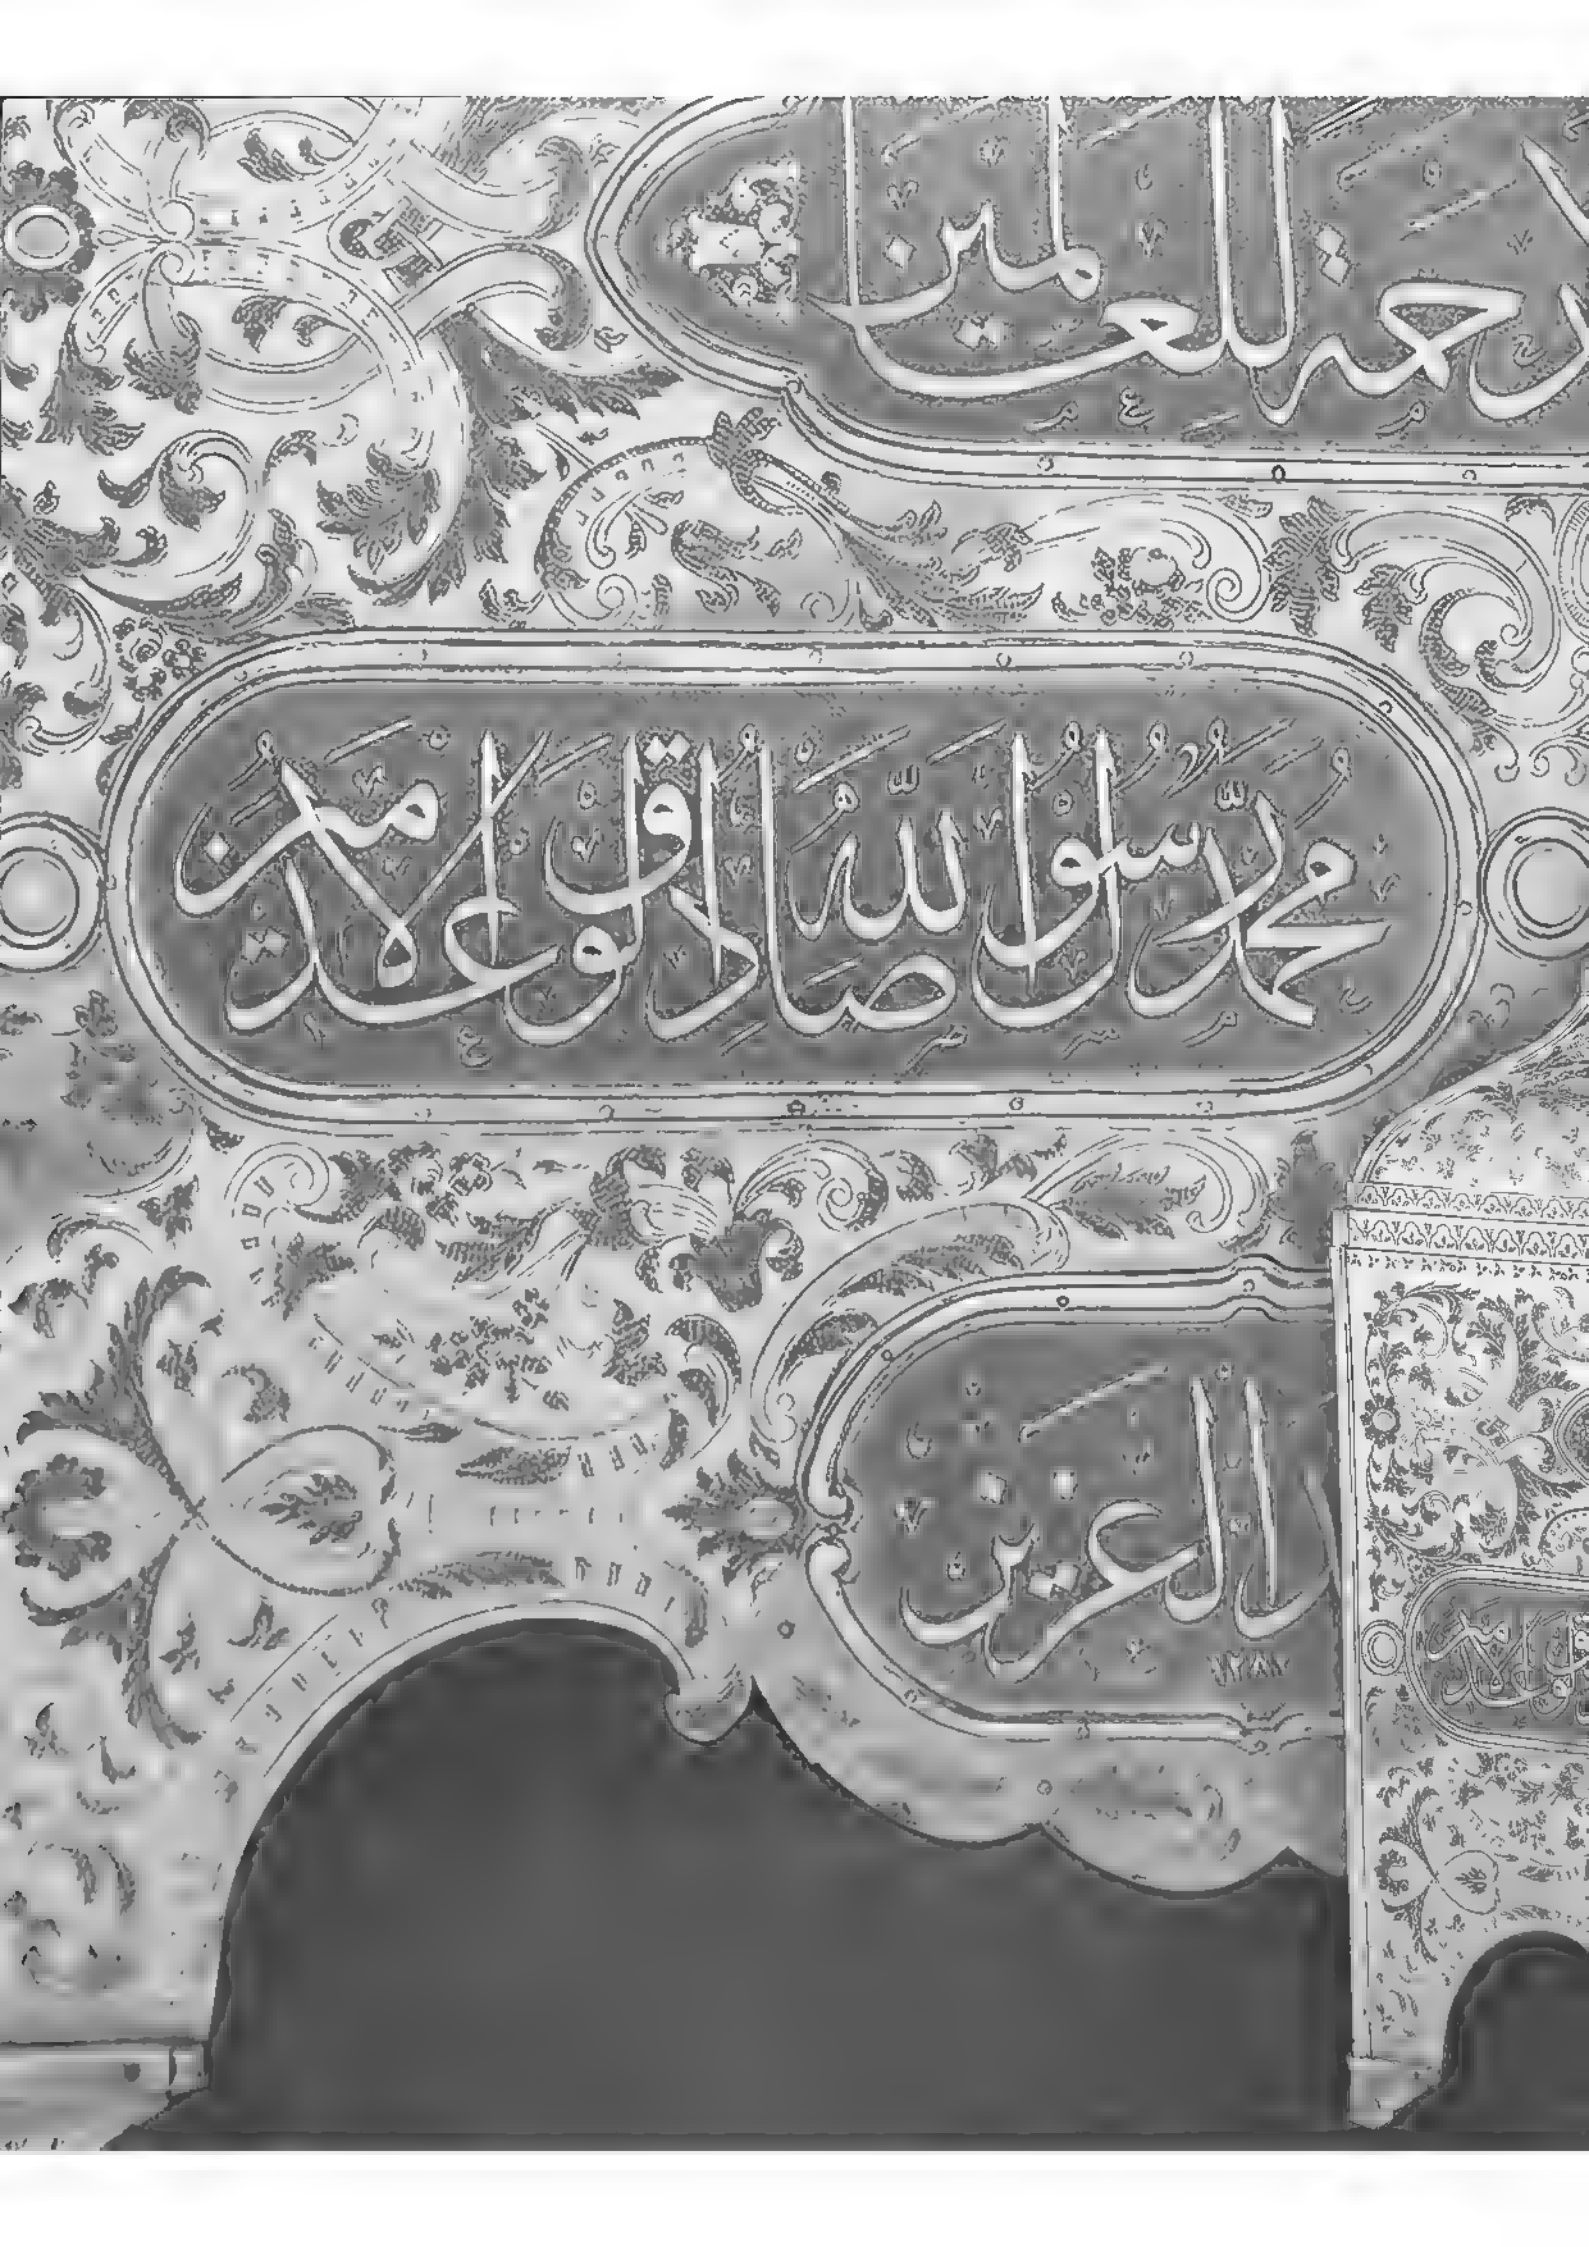 رحمة للعلمين
محمد رسول الله صادق الوعد الامين
العزيز